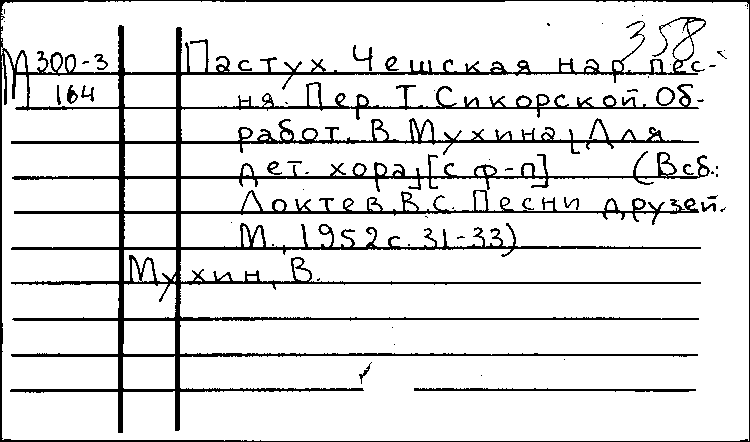 358
М 300-3 Пастух. Чешская нар. пес-
164 ня. Пер. Т. Сикорской. Об-
работ. В. Мухина [Для
дет. хора] [с ф-п] (В сб.:
Локтев, В.С. Песни друзей.
М., 1952 с. 31-33)
Мухин, В.